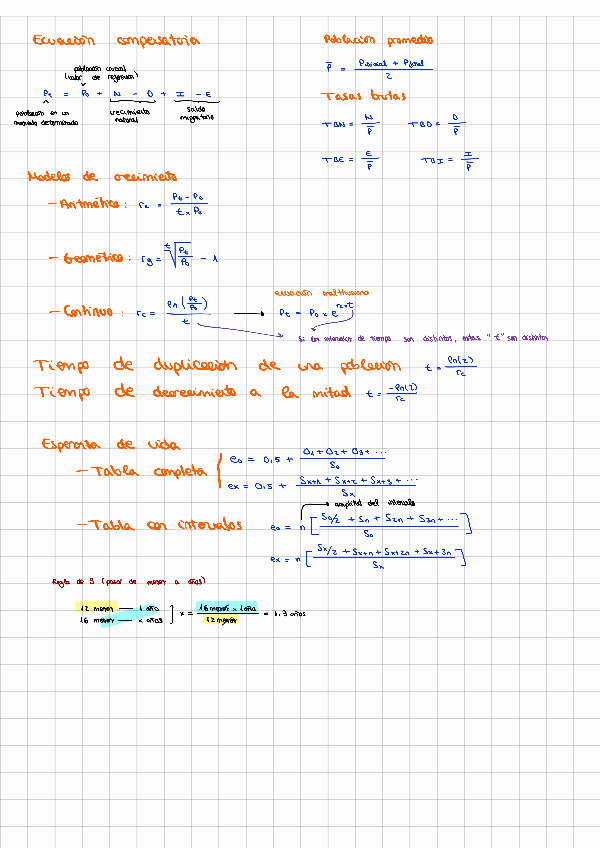 Ecuación compensatoria
población inicial
(valor de referencia)
Pt = P0 + N - D + I - E
población en un
momento determinado
crecimiento
natural
saldo
migratorio
Población promedio
P̄ = (Pinicial + Pfinal) / 2
Tasas brutas
TBN = N / P̄ TBD = D / P̄
TBE = E / P̄ TBI = I / P̄
Modelos de crecimiento
- Aritmético: ra = (Pt - P0) / (t × P0)
- Geométrico: rg = ᵗ√(Pt / P0) - 1
ecuación malthusiana
- Continuo: rc = ln(Pt / P0) / t → Pt = P0 × e^(rc×t)
Si los intervalos de tiempo son distintos, estas "t" son distintas
Tiempo de duplicación de una población t = ln(2) / rc
Tiempo de decrecimiento a la mitad t = -ln(2) / rc
Esperanza de vida
- Tabla completa
e0 = 0,5 + (S1 + S2 + S3 + ...) / S0
ex = 0,5 + (Sx+1 + Sx+2 + Sx+3 + ...) / Sx
amplitud del intervalo
- Tabla con intervalos
e0 = n [(S0/2 + Sn + S2n + S3n + ...) / S0]
ex = n [(Sx/2 + Sx+n + Sx+2n + Sx+3n) / Sx]
Regla de 3 (pasar de meses a años)
12 meses — 1 año
16 meses — x años
x = (16 meses × 1 año) / 12 meses = 1.3 años